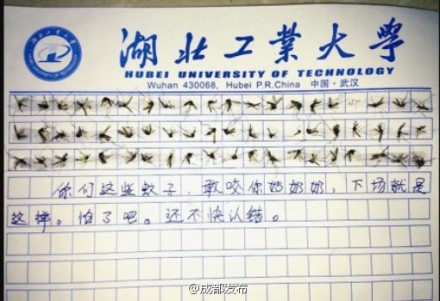 湖北工業大學
HUBEI UNIVERSITY OF TECHNOLOGY
Wuhan 430068, Hubei P.R.China 中国·武汉
你们这些蚊子，敢咬你奶奶奶，下场就是
这样。怕了吧。还不快认结。
@成都发布